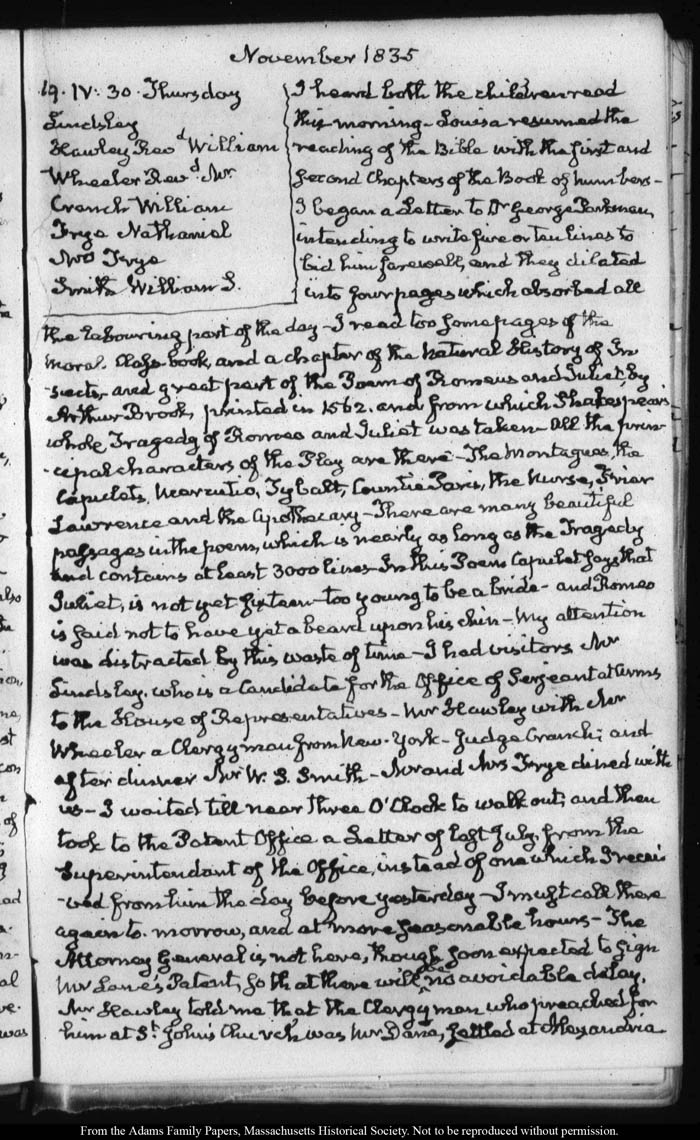 November 1835
19. IV: 30. Thursday
Lindsley
Hawley Revd William
Wheeler Revd Mr
Cranch William
Frye Nathaniel
Mrs Frye
Smith William S.
I heard both the children read
this morning - Louisa resumed the
reading of the Bible with the first and
second Chapters of the Book of numbers -
I began a Letter to Dr George Parkman,
intending to write five or ten lines to
bid him farewell, and they dilated
into four pages which absorbed all
the labouring part of the day - I read too some pages of the
moral Class-book, and a chapter of the natural History of In
-sects, and great part of the Poem of Romeus and Juliet, by
Arthur Brook, printed in 1562. and from which Shakespear's
whole Tragedy of Romeo and Juliet was taken - All the prin-
-cipal characters of the Play are there - The Montagues, the
Capulets, Mercutio, Tybalt, Countie Paris, the Nurse, Friar
Lawrence and the Apothecary - There are many beautiful
passages in the poem, which is nearly as long as the Tragedy
and contains at least 3000 lines - In this Poem Capulet says that
Juliet, is not yet sixteen - too young to be a bride - and Romeo
is said not to have yet a beard upon his chin - My attention
was distracted by this waste of time - I had visitors Mr
Lindsley, who is a Candidate for the Office of Sergeant at Arms
to the House of Representatives - Mr Hawley with Mr
Wheeler a Clergyman from New-York - Judge Cranch; and
after dinner Mr W. S. Smith - Mr and Mrs Frye dined with
us - I waited till near three O'Clock to walk out; and then
took to the Patent Office a Letter of last July, from the
Superintendant of the Office, instead of one which I recei
-ved from him the day before yesterday - I must call there
again to-morrow, and at more seasonable hours - The
Attorney General is not here, though soon expected to sign
Mr Lane's Patent, so that there will be no avoidable delay.
Mr Hawley told me that the Clergyman who preached for
him at St John's Church was Mr Dana, settled at Alexandria
From the Adams Family Papers, Massachusetts Historical Society. Not to be reproduced without permission.